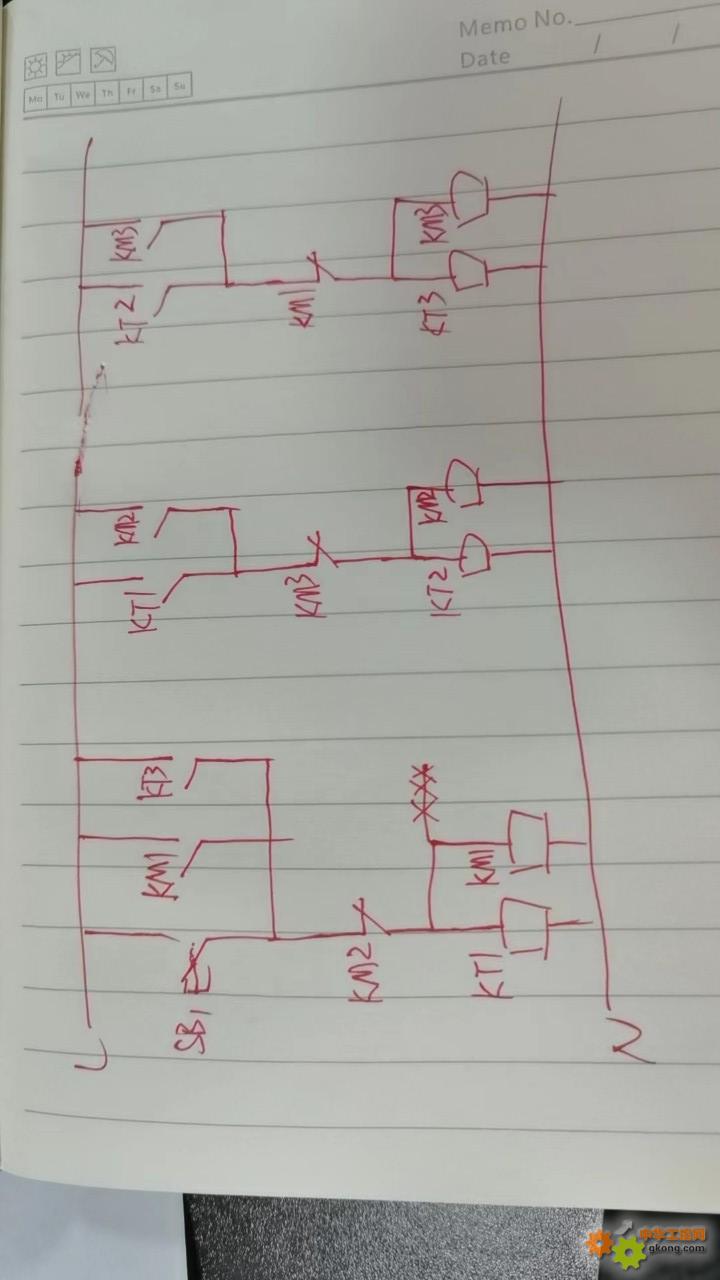 Memo No.
Date / /
Mo Tu We Th Fr Sa Su
KM3
KT2
KM1
KM3
KT3
KM2
KT1
KM3
KM2
KT2
KT3
KM1
SB1
KM2
KM1
KT1
L
N
中华工控网
gkong.com